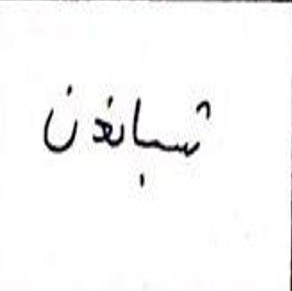 شبانغن